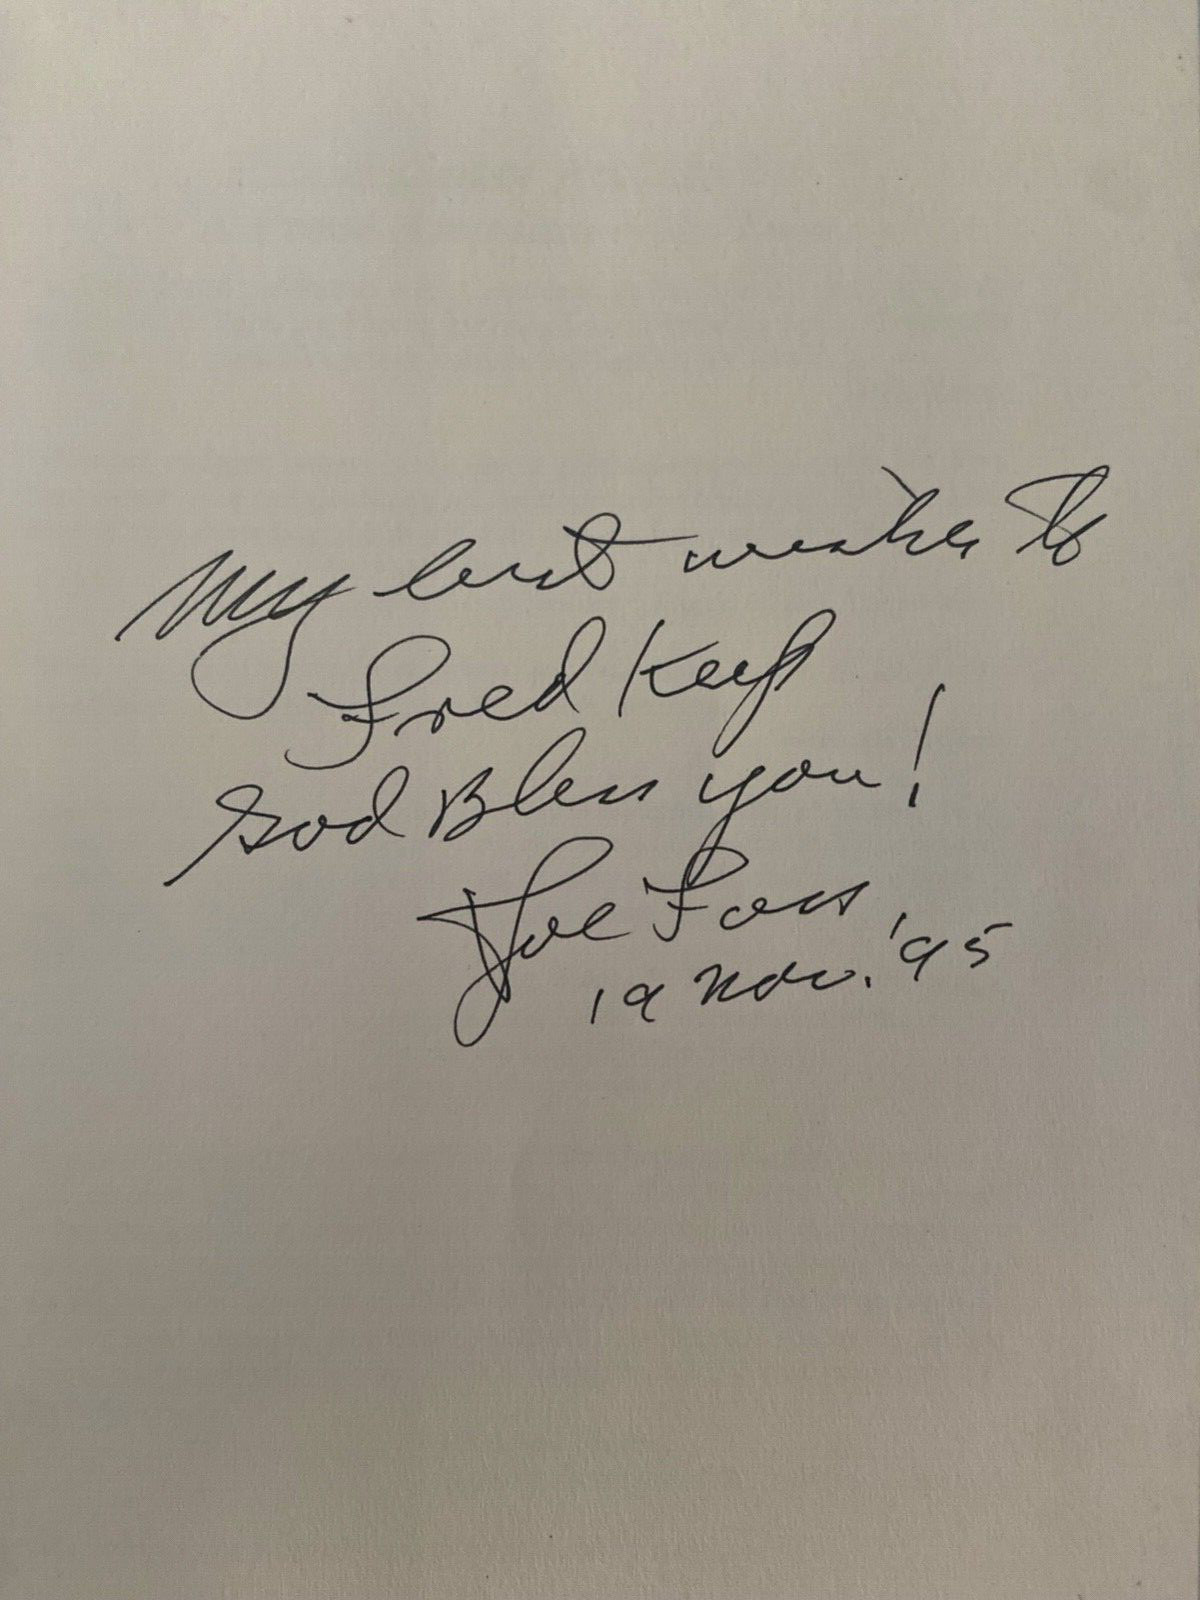 My best wishes to
Fred Keep
God Bless you!
Joe Foss
19 Nov. '95